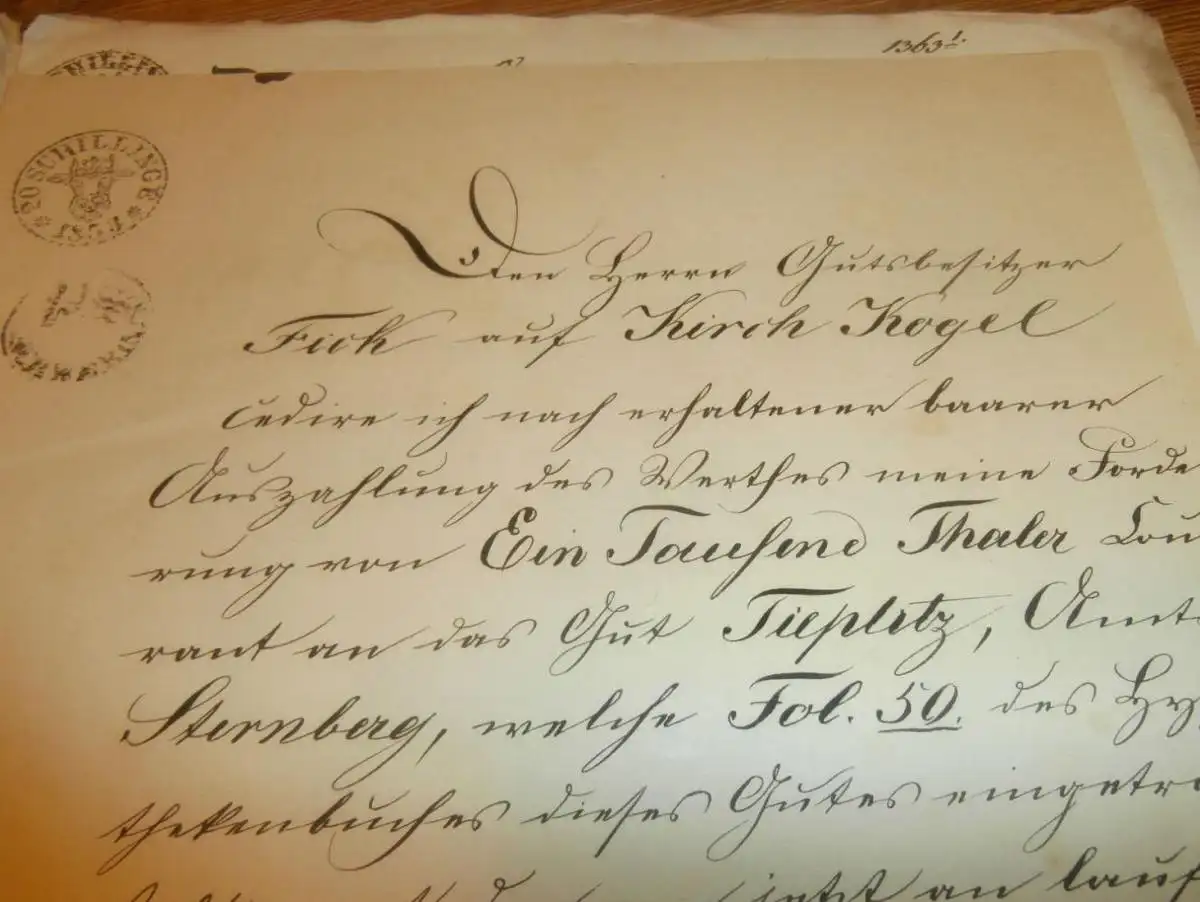 1363 1/2
20 SCHILLINGE
1857
Den Herrn Gutsbesitzer
Fick auf Kirch Kogel
cedire ich nach erhaltener baarer
Auszahlung des Werthes meine Forde
rung von Ein Tausend Thaler Cou
rant an das Gut Tieplitz, Amts
Sternberg, welche Fol. 50. des Hy
thekenbuches dieses Gutes eingetra
jetzt an lauf